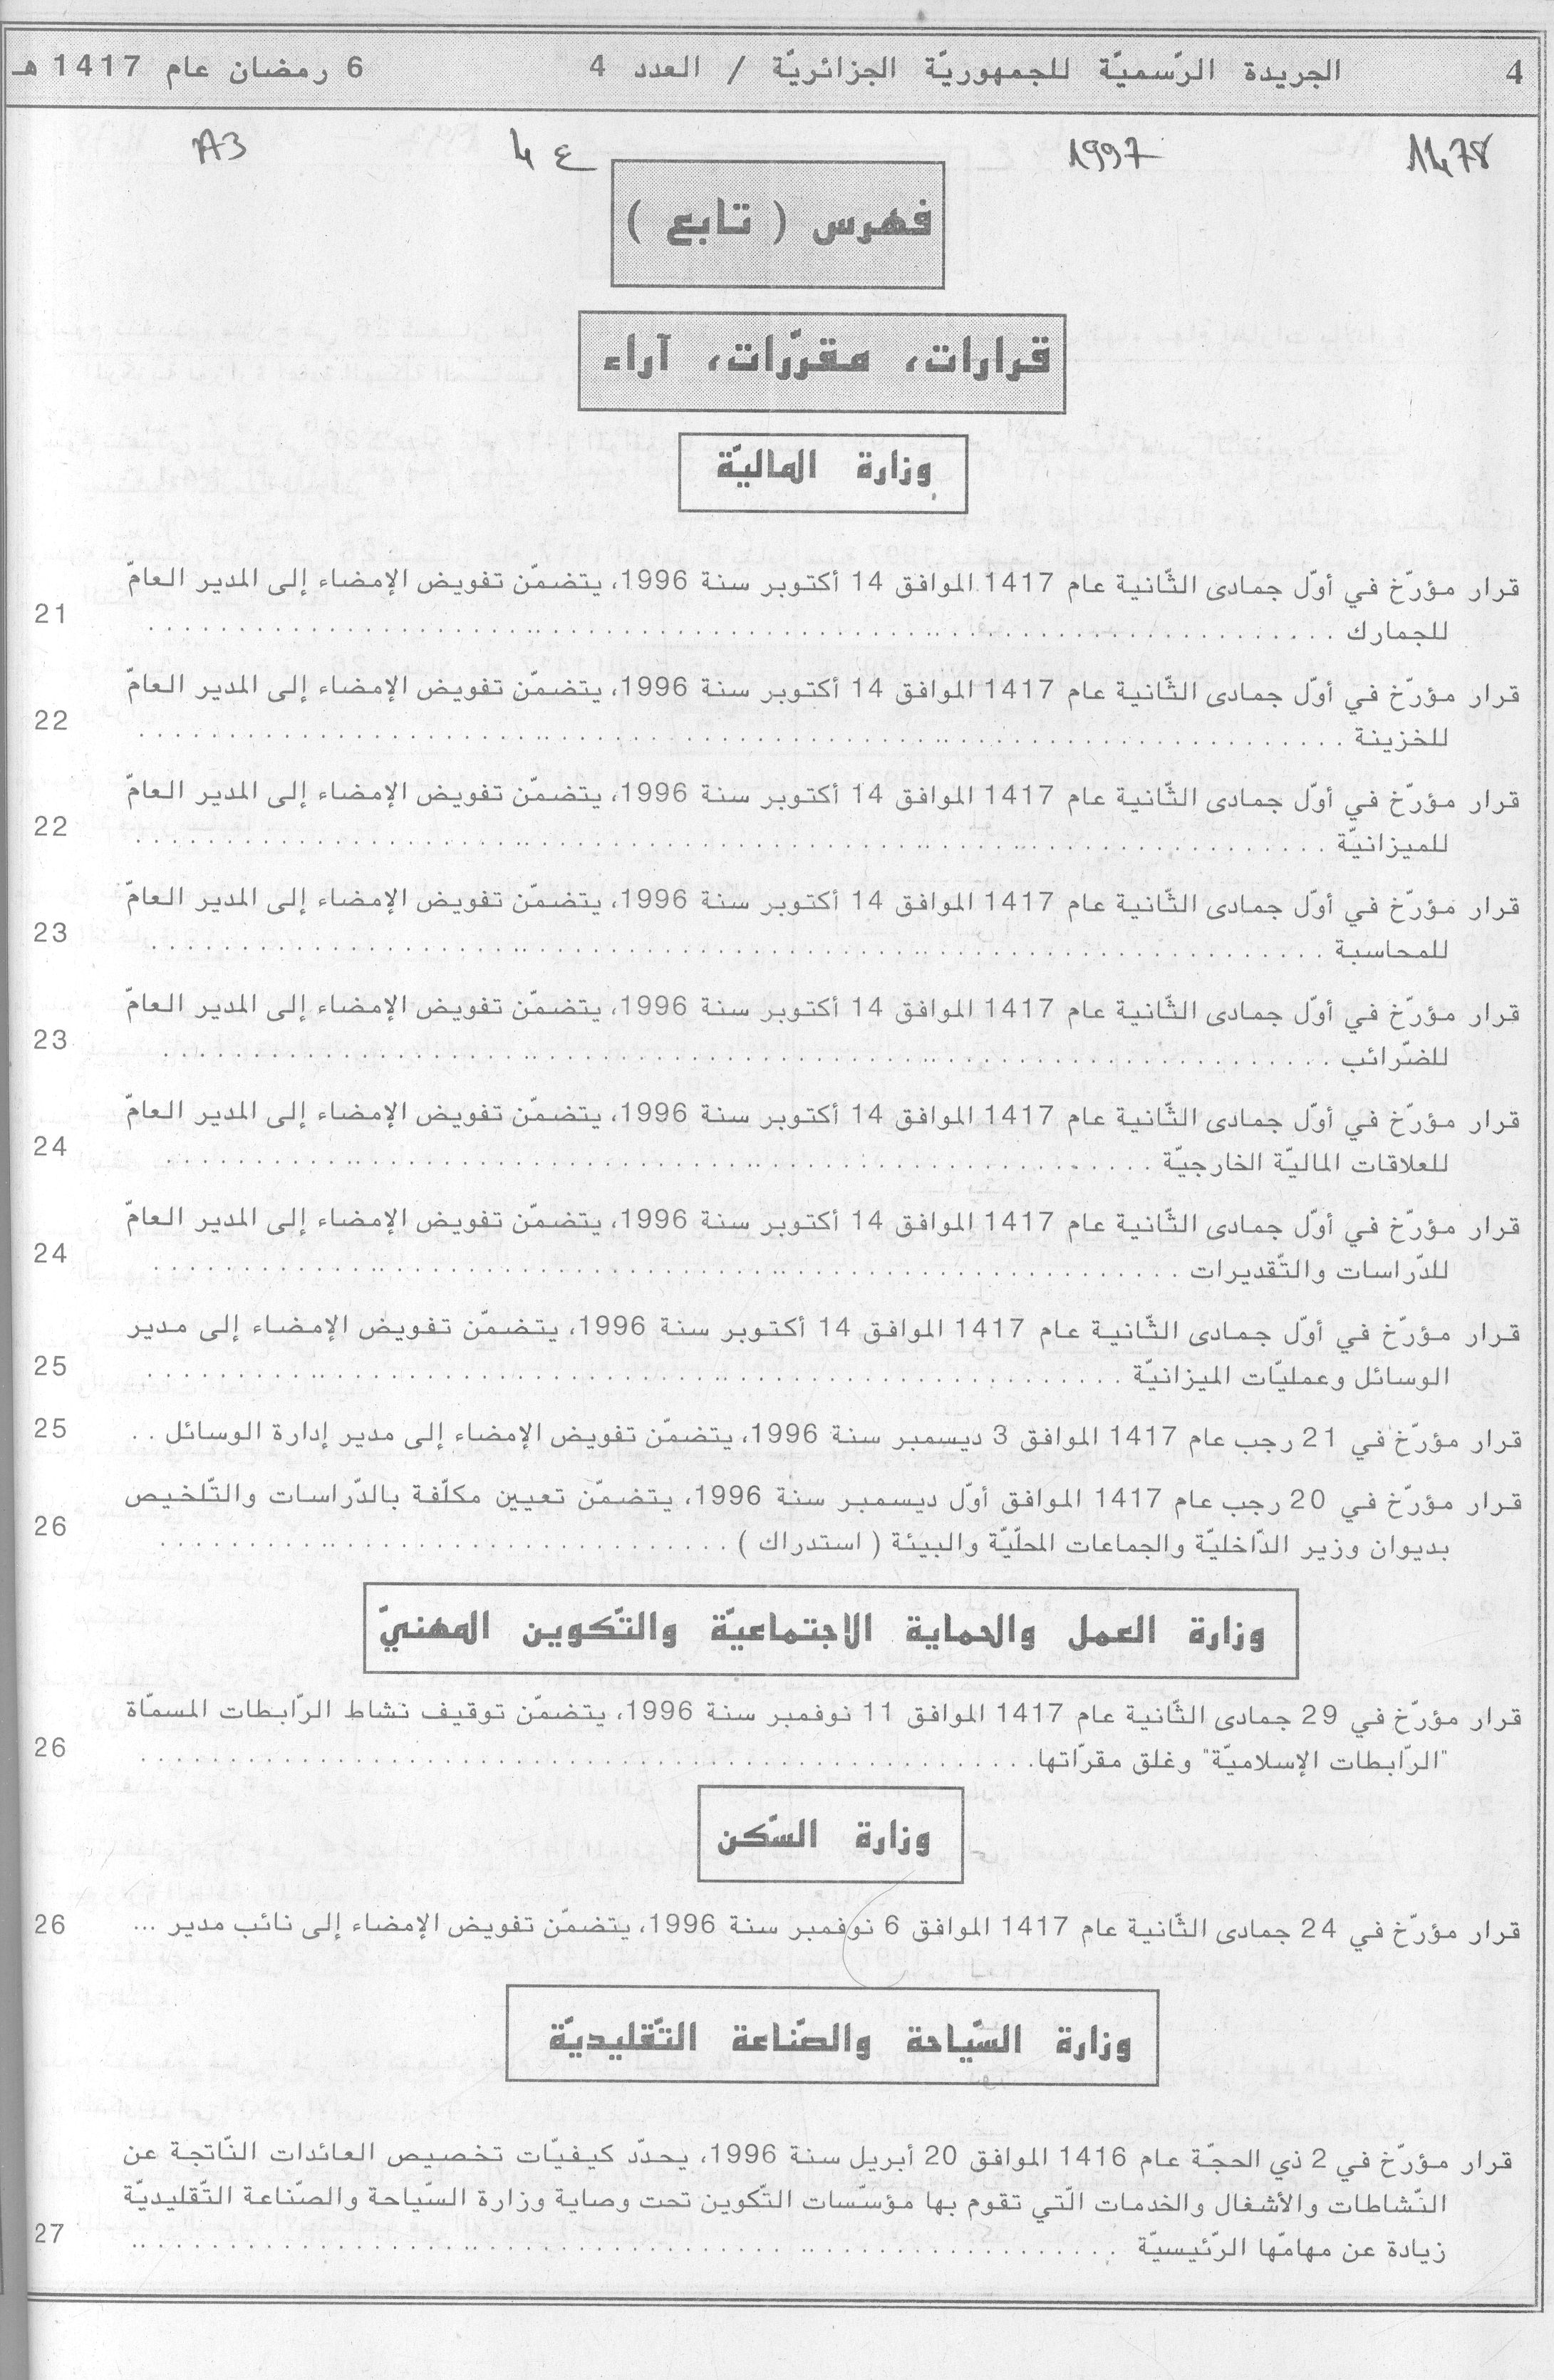 4 الجريدة الرّسميّة للجمهوريّة الجزائريّة / العدد 4 6 رمضان عام 1417 هـ
1478 1997 4 ع A3
فهرس ( تابع )
قرارات، مقرّرات، آراء
وزارة الماليّة
قرار مؤرّخ في أوّل جمادى الثّانية عام 1417 الموافق 14 أكتوبر سنة 1996، يتضمّن تفويض الإمضاء إلى المدير العامّ
للجمارك . . . . . . . . . . . . . . . . . . . . 21
قرار مؤرّخ في أوّل جمادى الثّانية عام 1417 الموافق 14 أكتوبر سنة 1996، يتضمّن تفويض الإمضاء إلى المدير العامّ
للخزينة . . . . . . . . . . . . . . . . . . . . 22
قرار مؤرّخ في أوّل جمادى الثّانية عام 1417 الموافق 14 أكتوبر سنة 1996، يتضمّن تفويض الإمضاء إلى المدير العامّ
للميزانيّة . . . . . . . . . . . . . . . . . . . . 22
قرار مؤرّخ في أوّل جمادى الثّانية عام 1417 الموافق 14 أكتوبر سنة 1996، يتضمّن تفويض الإمضاء إلى المدير العامّ
للمحاسبة . . . . . . . . . . . . . . . . . . . . 23
قرار مؤرّخ في أوّل جمادى الثّانية عام 1417 الموافق 14 أكتوبر سنة 1996، يتضمّن تفويض الإمضاء إلى المدير العامّ
للضّرائب . . . . . . . . . . . . . . . . . . . . 23
قرار مؤرّخ في أوّل جمادى الثّانية عام 1417 الموافق 14 أكتوبر سنة 1996، يتضمّن تفويض الإمضاء إلى المدير العامّ
للعلاقات الماليّة الخارجيّة . . . . . . . . . . . . . . . . . . . . 24
قرار مؤرّخ في أوّل جمادى الثّانية عام 1417 الموافق 14 أكتوبر سنة 1996، يتضمّن تفويض الإمضاء إلى المدير العامّ
للدّراسات والتّقديرات . . . . . . . . . . . . . . . . . . . . 24
قرار مؤرّخ في أوّل جمادى الثّانية عام 1417 الموافق 14 أكتوبر سنة 1996، يتضمّن تفويض الإمضاء إلى مدير
الوسائل وعمليّات الميزانيّة . . . . . . . . . . . . . . . . . . . . 25
قرار مؤرّخ في 21 رجب عام 1417 الموافق 3 ديسمبر سنة 1996، يتضمّن تفويض الإمضاء إلى مدير إدارة الوسائل . . 25
قرار مؤرّخ في 20 رجب عام 1417 الموافق أوّل ديسمبر سنة 1996، يتضمّن تعيين مكلّفة بالدّراسات والتّلخيص
بديوان وزير الدّاخليّة والجماعات المحلّيّة والبيئة ( استدراك ) . . . . . . . . . . . . . . . . . . . . 26
وزارة العمل والحماية الاجتماعيّة والتّكوين المهنيّ
قرار مؤرّخ في 29 جمادى الثّانية عام 1417 الموافق 11 نوفمبر سنة 1996، يتضمّن توقيف نشاط الرّابطات المسمّاة
"الرّابطات الإسلاميّة" وغلق مقرّاتها. . . . . . . . . . . . . . . . . . . . 26
وزارة السّكن
قرار مؤرّخ في 24 جمادى الثّانية عام 1417 الموافق 6 نوفمبر سنة 1996، يتضمّن تفويض الإمضاء إلى نائب مدير ... 26
وزارة السّياحة والصّناعة التّقليديّة
قرار مؤرّخ في 2 ذي الحجّة عام 1416 الموافق 20 أبريل سنة 1996، يحدّد كيفيّات تخصيص العائدات النّاتجة عن
النّشاطات والأشغال والخدمات الّتي تقوم بها مؤسّسات التّكوين تحت وصاية وزارة السّياحة والصّناعة التّقليديّة
زيادة عن مهامّها الرّئيسيّة . . . . . . . . . . . . . . . . . . . . 27